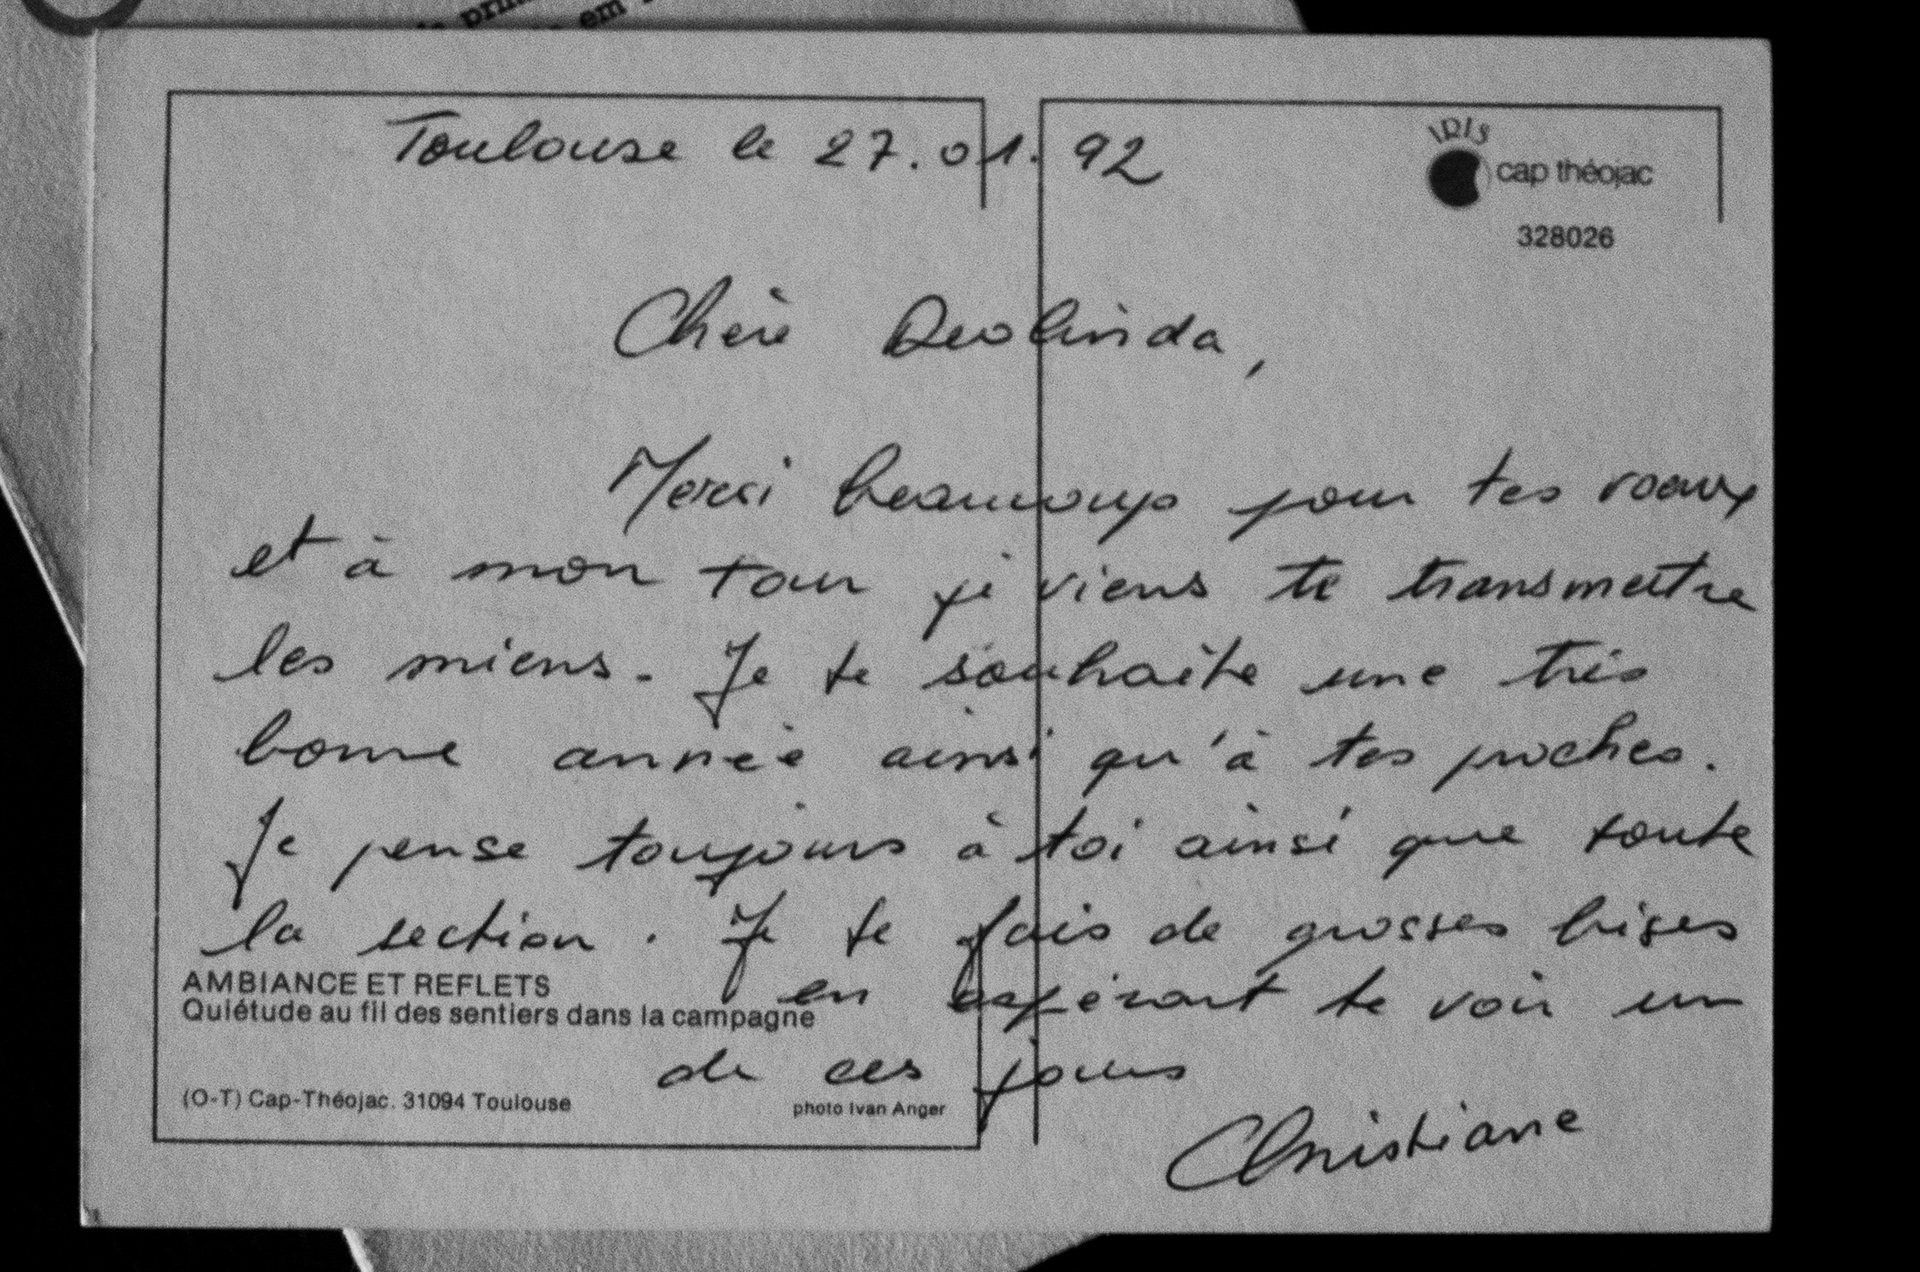 em
Toulouse le 27.01.92
IRIS
cap théojac
328026
Chère Deolinda,
Merci beaucoup pour tes voeux
et à mon tour je viens te transmettre
les miens. Je te souhaite une très
bonne année ainsi qu'à tes proches.
Je pense toujours à toi ainsi que toute
la section. Je te fais de grosses bises
en espérant te voir un
de ces jours
Christiane
AMBIANCE ET REFLETS
Quiétude au fil des sentiers dans la campagne
(O-T) Cap-Théojac. 31094 Toulouse
photo Ivan Anger